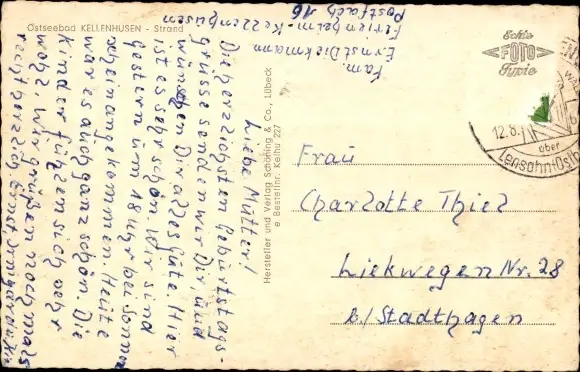 Ostseebad KELLENHUSEN - Strand
Fam.
Ernst Diekmann
Ferienheim-Kellenhusen
Postfach 16
Liebe Mutter!
Die herzlichsten Geburtstags-
grüsse senden wir Dir, und
wünschen Dir alles Gute. Hier
ist es sehr schön. Wir sind
gestern um 18 Uhr bei Sonnen
schein angekommen. Heute
war es auch ganz schön. Die
Kinder fühlen sich sehr
wohl. Wir grüßen nochmals
recht herzlich Ernst Irmgard
Hersteller und Verlag Schöning & Co., Lübeck
Bestellnr. Kelhu 227
Echte
FOTO
Typie
12.8.
über
Lensahn (Ostholst
Frau
Charlotte Thiel
Liekwegen Nr. 28
b./ Stadthagen